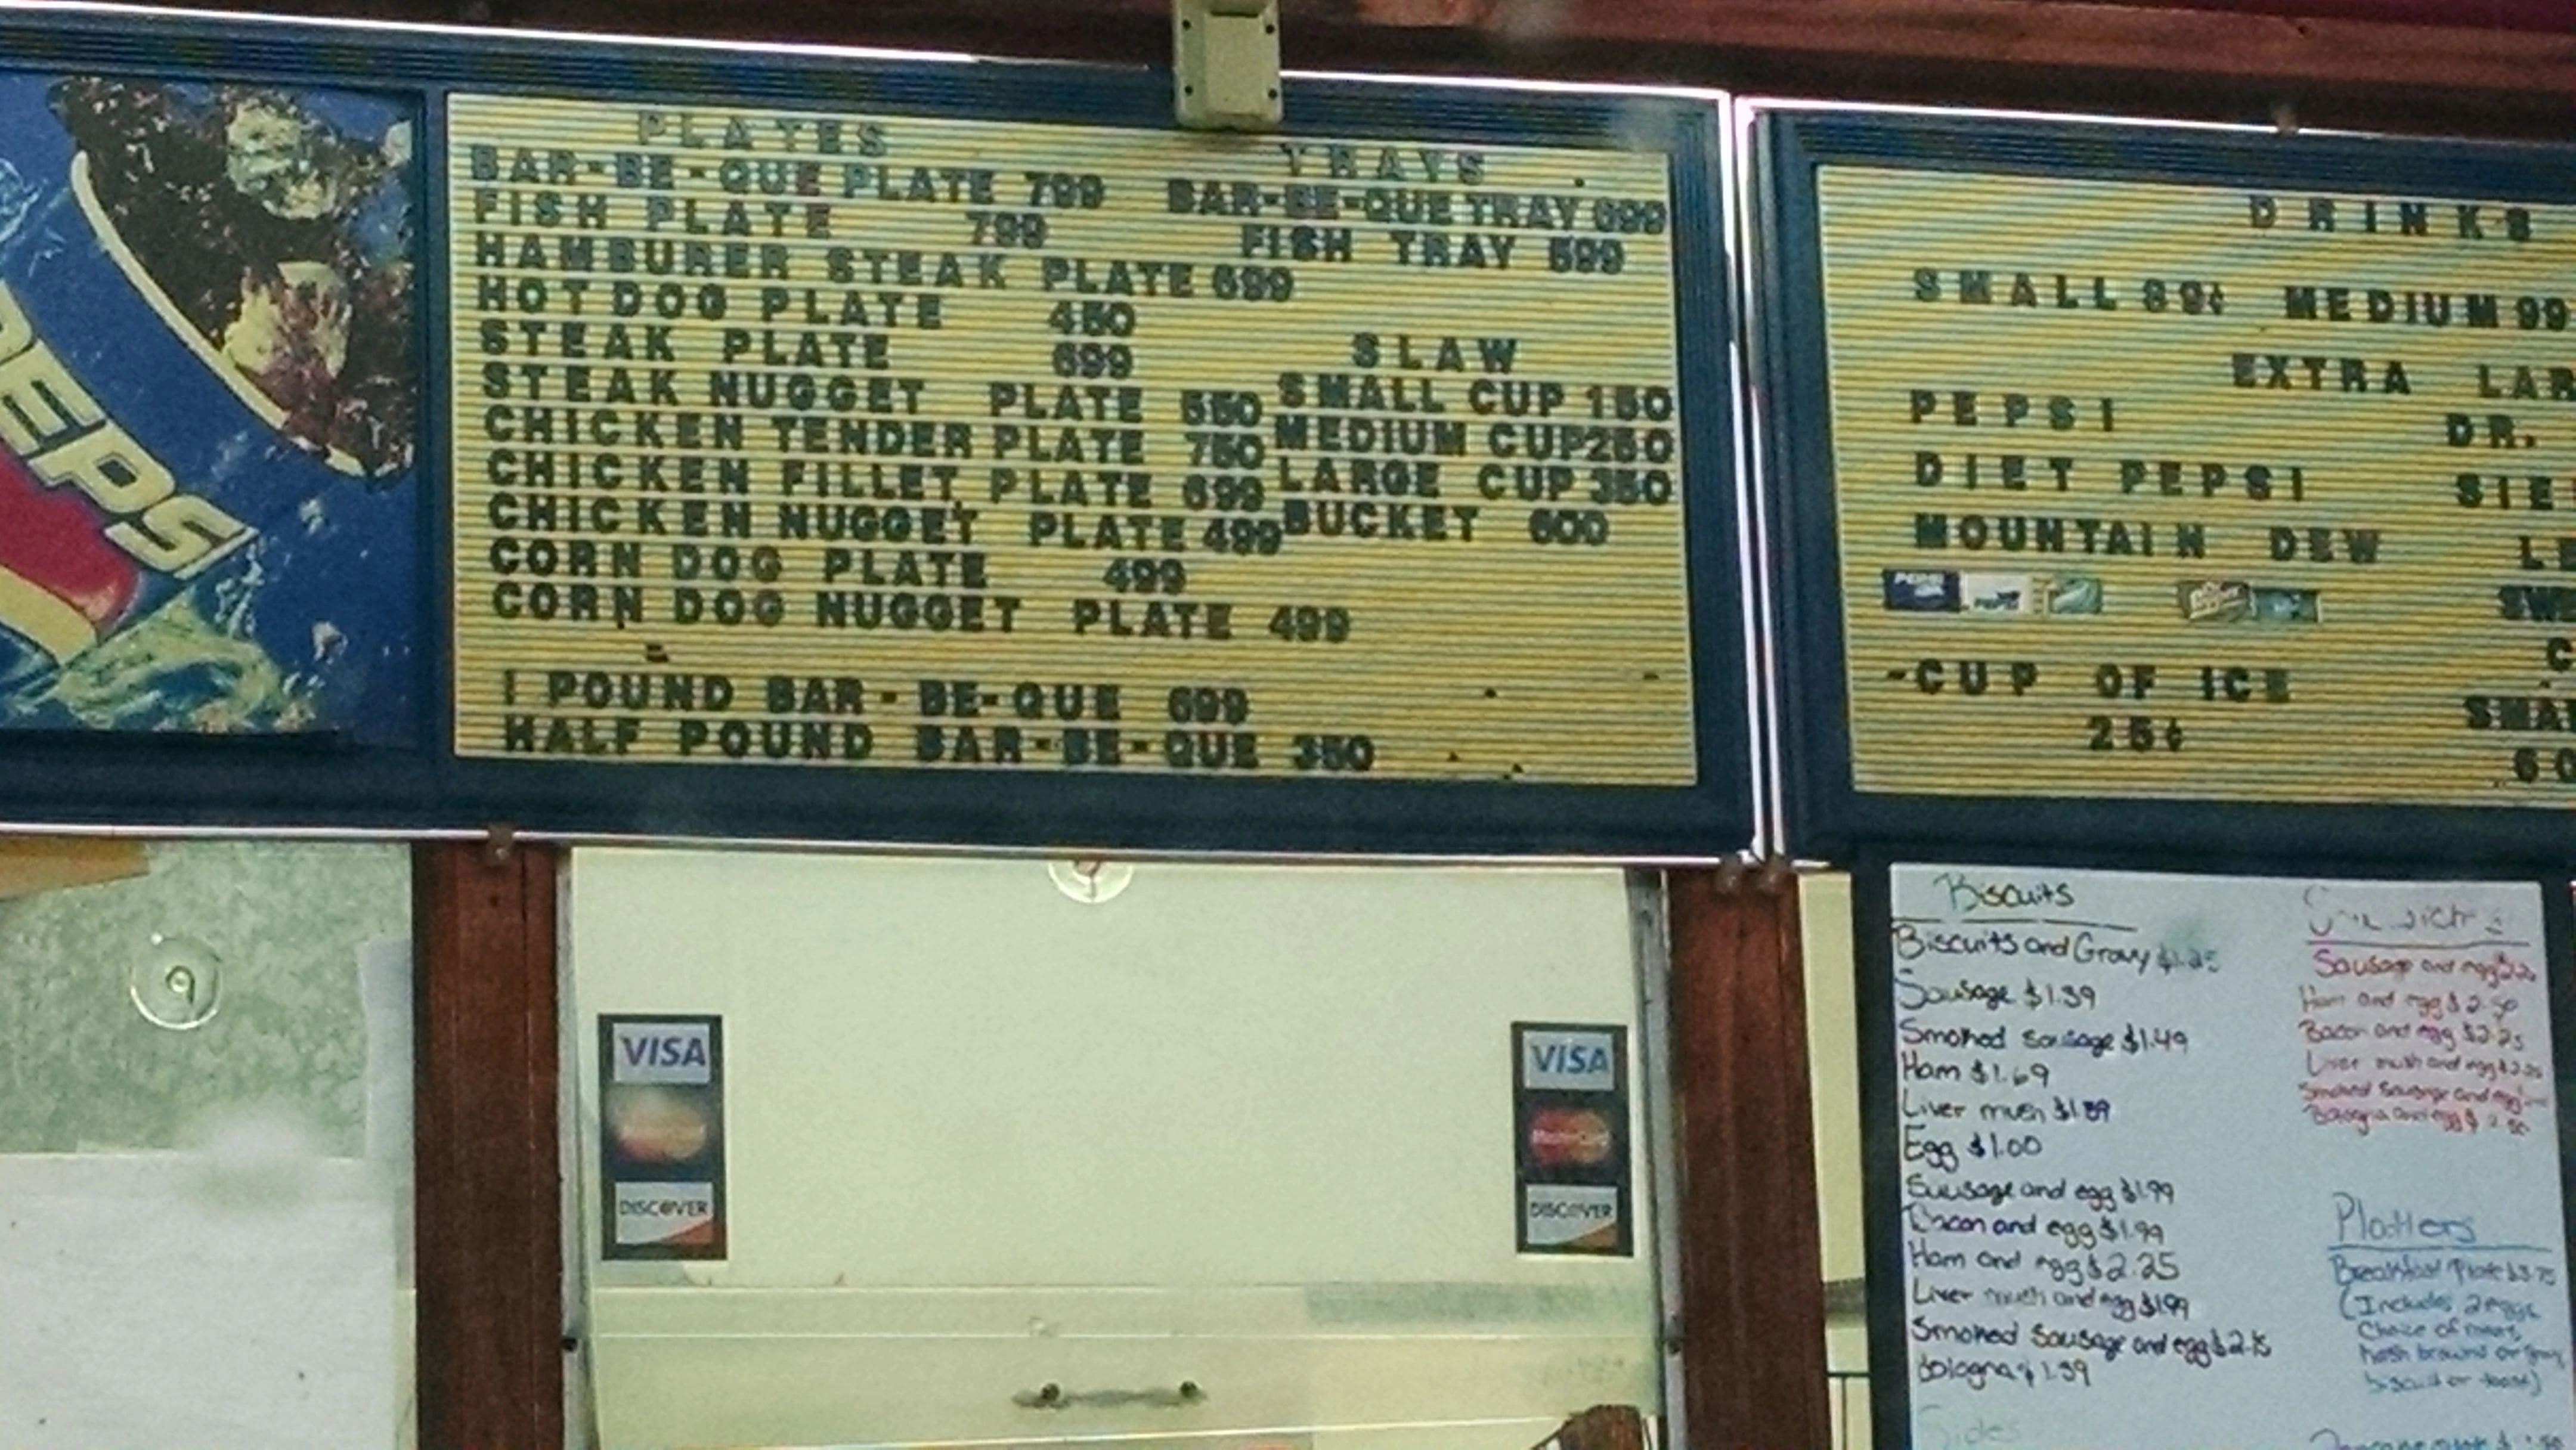 PEPSI
PLATES
BAR-BE-QUE PLATE 799
FISH PLATE 799
HAMBURER STEAK PLATE 699
HOT DOG PLATE 450
STEAK PLATE 699
STEAK NUGGET PLATE 550
CHICKEN TENDER PLATE 750
CHICKEN FILLET PLATE 699
CHICKEN NUGGET PLATE 499
CORN DOG PLATE 499
CORN DOG NUGGET PLATE 499
1 POUND BAR-BE-QUE 699
HALF POUND BAR-BE-QUE 350
TRAYS
BAR-BE-QUE TRAY 699
FISH TRAY 599
SLAW
SMALL CUP 150
MEDIUM CUP 250
LARGE CUP 350
BUCKET 600
DRINKS
SMALL 89¢ MEDIUM 99
EXTRA LAR
PEPSI DR.
DIET PEPSI SIE
MOUNTAIN DEW LE
SW
-CUP OF ICE
25¢
SMA
60
VISA
DISCOVER
VISA
DISCOVER
Biscuits
Biscuits and Gravy $1.25
Sausage $1.39
Smoked sausage $1.49
Ham $1.69
Liver mush $1.39
Egg $1.00
Sausage and egg $1.99
Bacon and egg $1.99
Ham and egg $2.25
Liver mush and egg $1.99
Smoked sausage and egg $2.15
Bologna $1.39
Sides
Sausage and egg
Ham and egg $2.50
Bacon and egg $2.25
Liver mush and egg $2.25
Smoked Sausage and egg
Bologna and egg $2.50
Platters
Breakfast Plate $3.75
(Includes 2 eggs
Choice of meat,
hash browns or
biscuit or toast)